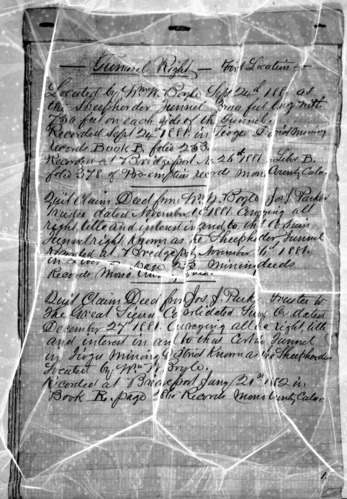 Tunnel Right — First Location —
Located by Wm W. Boyle Sept 24th 1881 as
the Sheepherder Tunnel 3000 feet long with
750 feet on each side of the Tunnel.
Recorded Sept 24th 1881. in Tioga District Mining
records Book B. folio 233.
Recorded at Bridgeport 1881. Lib. B.
folio 378 of records Mono County Cala.
Quit Claim Deed from Wm W. Boyle Jos. J. Parker
Trustee dated November 1st 1881. Conveying all
right title and interest in and to the certain
Tunnel right known as the Sheepherder Tunnel
Recorded at Bridgeport November 1881.
in page Mining deeds
Records Mono County
Quit Claim Deed from Jos. J. Parker Trustee to
The Great Sierra Consolidated Silver Co dated
December 27th 1881. Conveying all the right, title
and interest in and to that certain Tunnel
in Tioga Mining District known as the Sheepherder
Located by Wm W. Boyle.
Recorded at Bridgeport Jany 21st 1882 in
Book R. page Records Mono County Cala.
1.